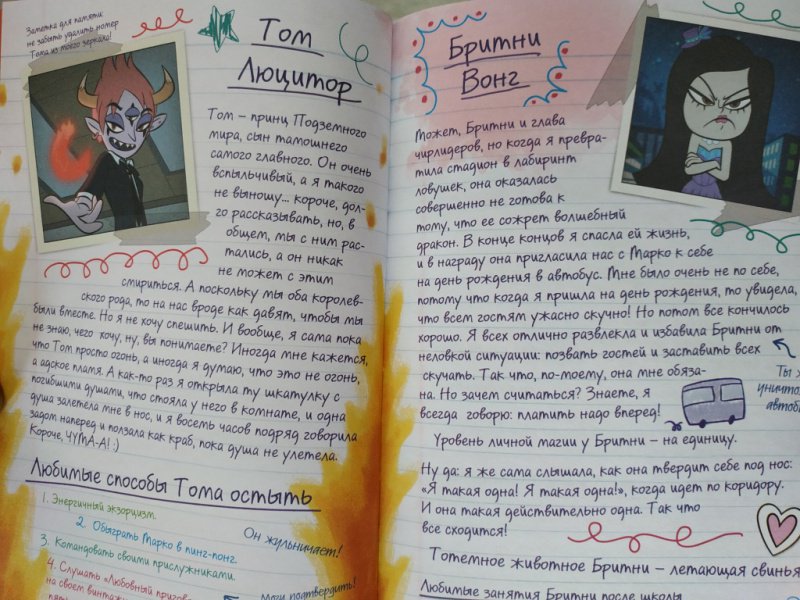 Заметка для памяти
не забыть удалить номер
Тома из моего зеркала!
Том
Люцитор
Том – принц Подземного
мира, сын тамошнего
самого главного. Он очень
вспыльчивый, а я такого
не выношу... короче, дол-
го рассказывать, но, в
общем, мы с ним рас-
стались, а он никак
не может с этим
смириться. А поскольку мы оба королев-
ского рода, то на нас вроде как давят, чтобы мы
были вместе. Но я не хочу спешить. И вообще, я сама пока
не знаю, чего хочу, ну, вы понимаете? Иногда мне кажется,
что Том просто огонь, а иногда я думаю, что это не огонь,
а адское пламя. А как-то раз я открыла ту шкатулку с
погибшими душами, что стояла у него в комнате, и одна
душа залетела мне в нос, и я восемь часов подряд говорила
задом наперед и ползала как краб, пока душа не улетела.
Короче, ЧУМА-А! :)
Любимые способы Тома остыть
1. Энергичный экзорцизм.
2. Обыграть Марко в пинг-понг.
Он жульничает!
3. Командовать своими прислужниками.
4. Слушать «Любовный
на своем
Могу подтвердить!
Бритни
Вонг
Может, Бритни и глава
чирлидеров, но когда я превра-
тила стадион в лабиринт
ловушек, она оказалась
совершенно не готова к
тому, что ее сожрет волшебный
дракон. В конце концов я спасла ей жизнь,
и в награду она пригласила нас с Марко к себе
на день рождения в автобус. Мне было очень не по себе,
потому что когда я пришла на день рождения, то увидела,
что всем гостям ужасно скучно! Но потом все кончилось
хорошо. Я всех отлично развлекла и избавила Бритни от
неловкой ситуации: позвать гостей и заставить всех
скучать. Так что, по-моему, она мне обяза-
на. Но зачем считаться? Знаете, я
всегда говорю: платить надо вперед!
Ты
Уровень личной магии у Бритни – на единицу.
Ну да: я же сама слышала, как она твердит себе под нос:
«Я такая одна! Я такая одна!», когда идет по коридору.
И она такая действительно одна. Так что
все сходится!
Тотемное животное Бритни – летающая свинья
Любимые занятия Бритни после школы